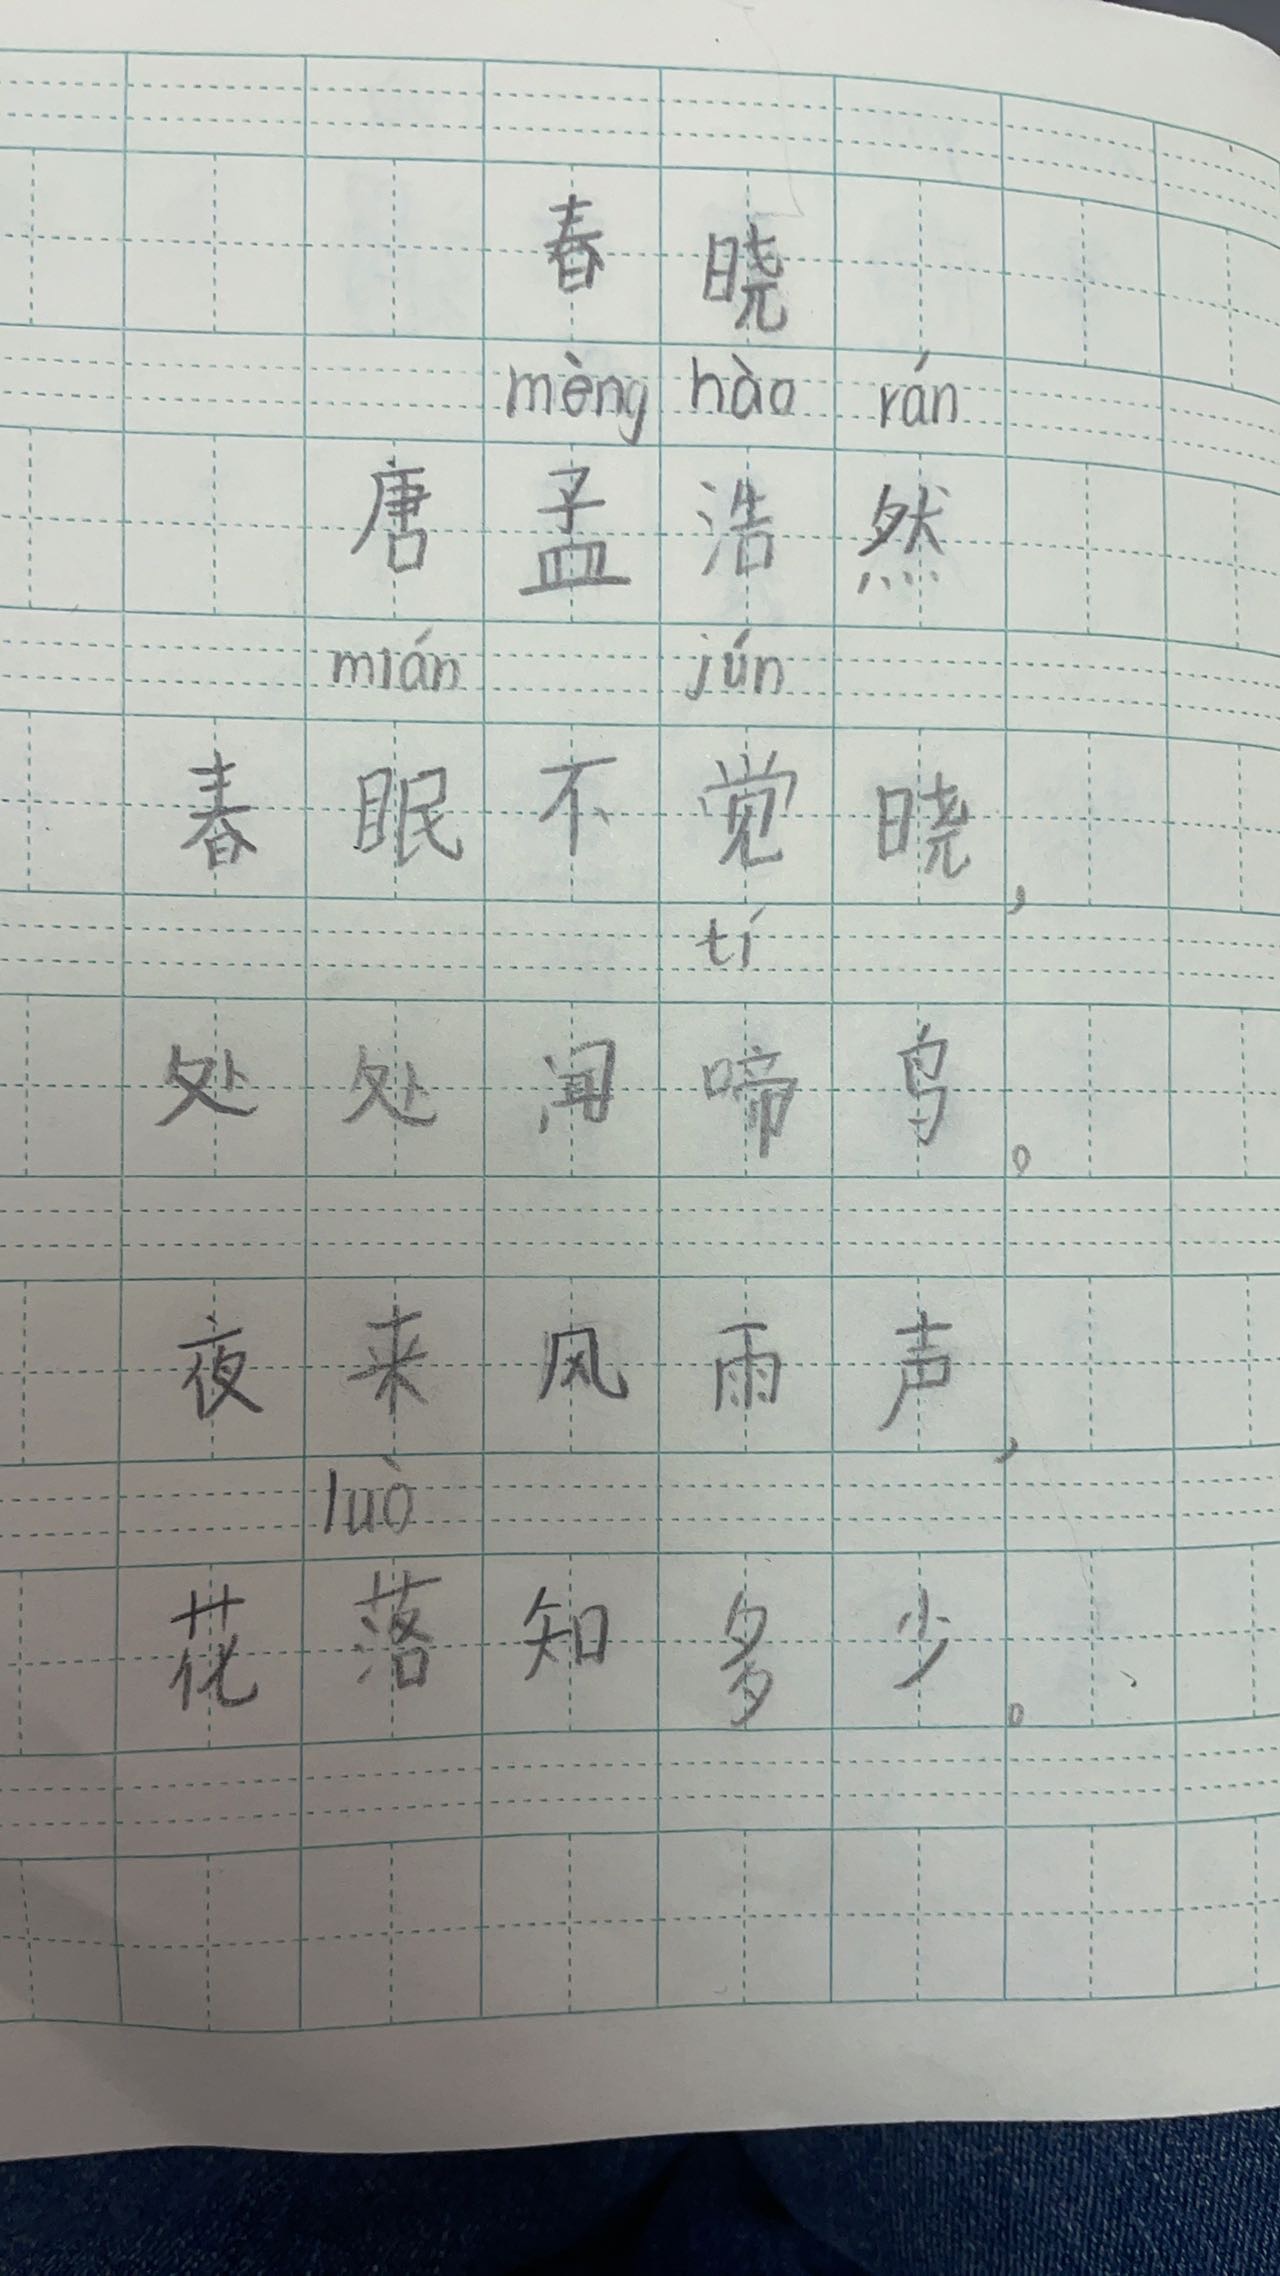 春晓
mèng hào rán
唐孟浩然
mián jún
春眠不觉晓，
tí
处处闻啼鸟。
夜来风雨声，
luò
花落知多少。